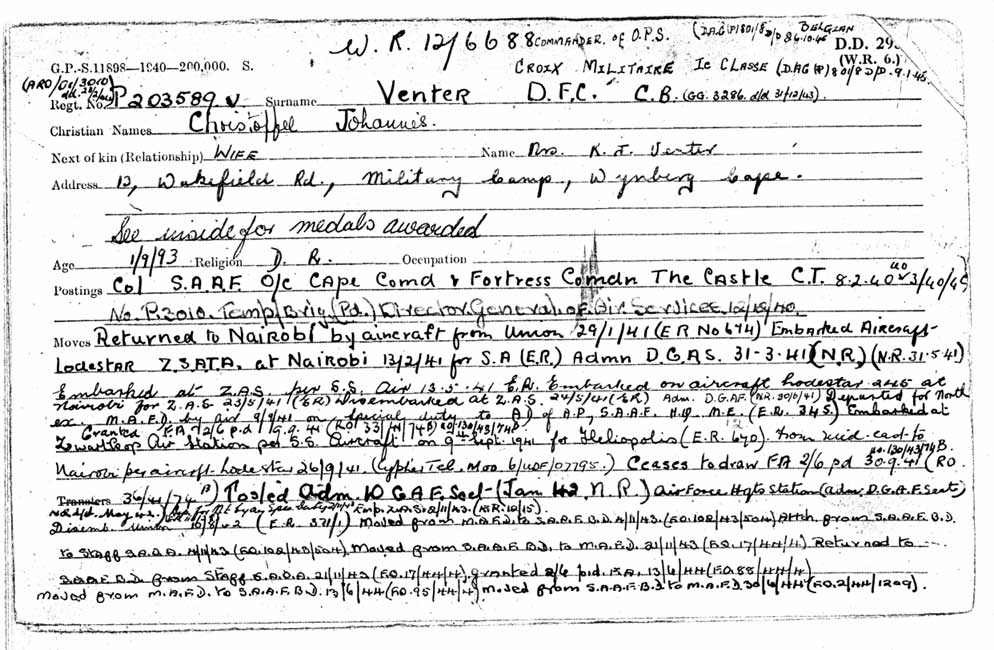 W. R. 12/6688 COMMANDER. OF O.P.S. BELGIAN
D.D. 29
G.P.-S.11898—1940—200,000. S. CROIX MILITAIRE Ie CLASSE (W.R. 6.)
Regt. No. P203589 V Surname Venter D.F.C. C.B. (GG. 3286. d/d 31/12/43).
Christian Names Christoffel Johannes.
Next of kin (Relationship) WIFE Name Mrs. K. I. Venter
Address 13, Wakefield Rd., Military Camp, Wynberg Cape.
See inside for medals awarded
Age 1/9/93 Religion D. R. Occupation
Postings Col S.A.A.F. O/c Cape Comd & Fortress Comdn The Castle C.T. 8.2.40
No. P.2010. Temp/Brig. (Pd.) Director General of Air Services
Moves Returned to Nairobi by aircraft from Union 29/1/41 (E R No 674) Embarked Aircraft
Lodestar Z.SATA. at Nairobi 13/2/41 for S.A (E.R.) Admn D.G.A.S. 31-3-41 (N.R.) (N.R. 31.5.41)
Embarked at Z.A.S. per S.S. Air 13.5.41 E.R. Embarked on aircraft Lodestar 245 at
Nairobi for Z.A.S 23/5/41 (ER) Disembarked at Z.A.S. 24/5/41 (ER) Adm. D.G.A.F. (NR. 30/6/41) Departed for North
ex. M.A.F.D. by air 9/9/41 on special duty to A.D of A.P., S.A.A.F. H.Q. M.E. (E.R. 345) Embarked at
Granted FA 2/6 p.d 9.9.41
Zwartkop Air Station per S.S. Aircraft on 9th Sept. 1941 for Heliopolis (E.R. 640). from mid-east to
Nairobi per aircraft Lodestar 26/9/41. (Cypher Tel. Moo. 6/UDF/07795.) Ceases to draw FA 2/6 pd 30.9.41 (RO
Transfers 36/41/74) Posted Adm. D G A F, Sect- (Jan 42, N. R.) Air Force Hqts Station (adm: D.G.A.F. Sect)
Disemb. Union 16/8/42 (E.R. 371/1) Moved from M.A.F.D. to S.A.A.F.B.D. 4/11/43. (F.O. 192/43/504) Attch. from S.A.A.F. B.D.
to Staff S.A.D.A. 4/11/43 (F.O. 192/43/504) Moved from S.A.A.F. B.D. to M.A.F.D. 21/11/43 (F.O. 17/44/4). Returned to
S.A.A.F. B.D. from Staff S.A.D.A. 21/11/43 (F.O. 17/44/4). granted 2/6 p.d. F.A. 13/6/44 (F.O. 88/44/4)
moved from M.A.F.D. to S.A.A.F. B.D. 13/6/44 (F.O. 95/44/4) moved from S.A.A.F. B.D. to M.A.F.D. 30/6/44 (F.O. 2/44/1209).